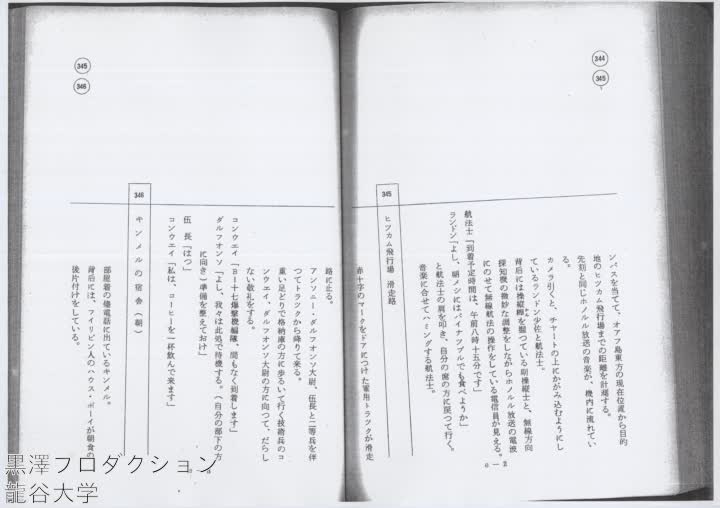 344
345
ンパスを当てて、オアフ島東方の現在位置から目的
地のヒツカム飛行場までの距離を計測する。
先刻と同じホノルル放送の音楽が、機内に流れてい
る。
カメラ引くと、チャートの上にかがみ込むようにし
ているランドン少佐と航法士。
背後には操縦桿を握っている副操縦士と、無線方向
探知機の微妙な調整をしながらホノルル放送の電波
にのせて無線航法の操作をしている電信員が見える。
航法士「到着予定時間は、午前八時十五分です」
ランドン「よし、朝メシにはパイナツプルでも食べようか」
と航法士の肩を叩き、自分の席の方に戻って行く。
音楽に合せてハミングする航法士。
c—2
345
ヒツカム飛行場 滑走路
赤十字のマークをドアにつけた軍用トラツクが滑走
路に止る。
アンソニー・ダルフオンソ大尉、伍長と二等兵を伴
つてトラツクから降りて来る。
重い足どりで格納庫の方に歩いて行く技術兵のコ
ンウエイ、ダルフオンソ大尉の方に向つて、だらし
ない敬礼をする。
コンウエイ「B—十七爆撃機編隊、間もなく到着します」
ダルフオンソ「よし、我々は此処で待機する。(自分の部下の方
に向き)準備を整えておけ」
伍 長「はつ」
コンウエイ「私は、コーヒーを一杯飲んで来ます」
345
346
346
キンメルの宿舎(朝)
部屋着の儘電話に出ているキンメル。
背後には、フイリピン人のハウス・ボーイが朝食の
後片付けをしている。
黒澤プロダクション
龍谷大学